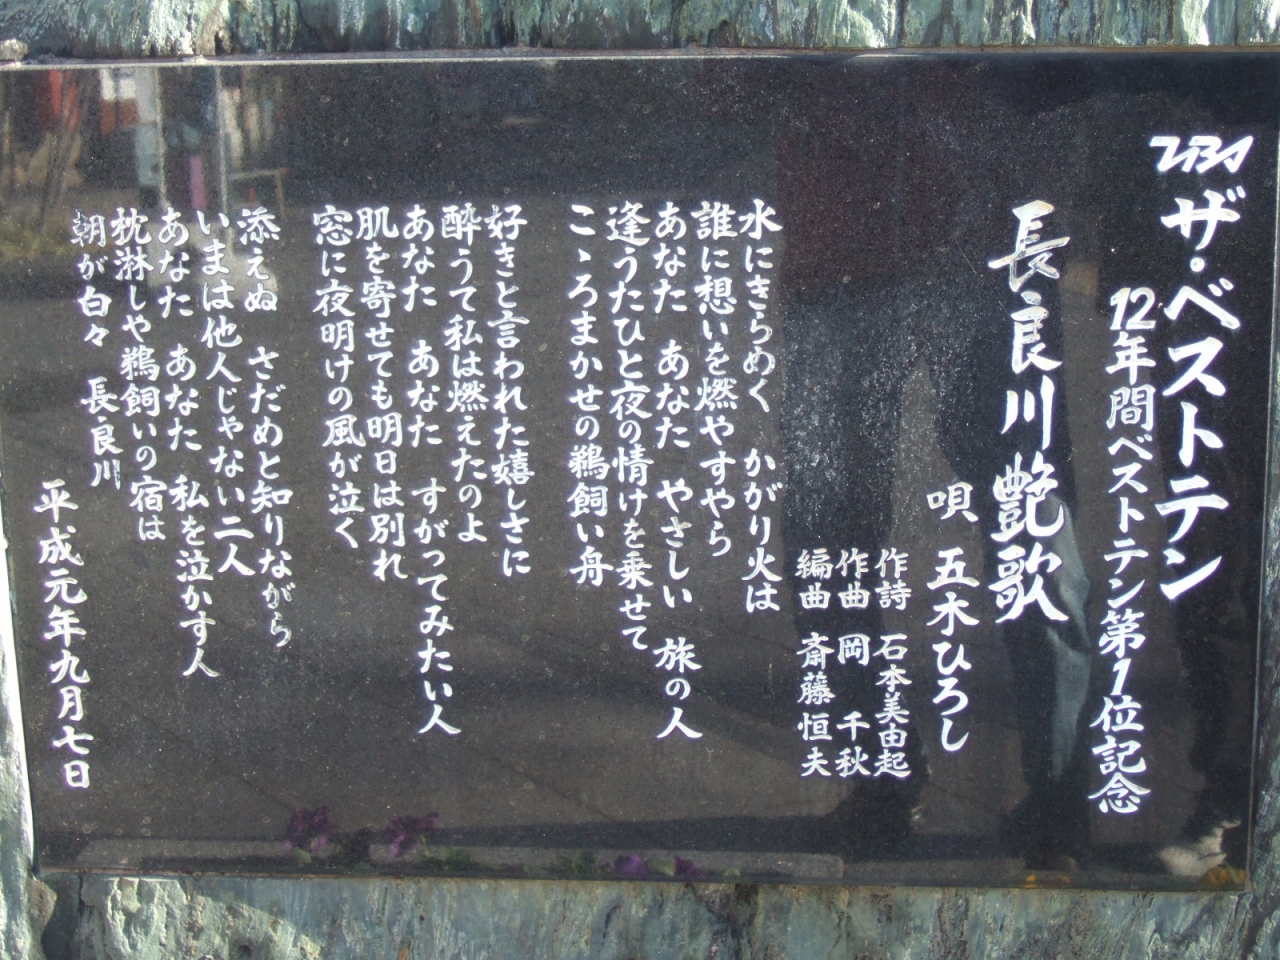 TBS
ザ・ベストテン
12年間ベストテン第1位記念
長良川艶歌
唄 五木ひろし
作詩 石本美由起
作曲 岡 千秋
編曲 斎藤恒夫
水にきらめく かがり火は
誰に想いを燃やすやら
あなた あなた やさしい 旅の人
逢うたひと夜の情けを乗せて
こゝろまかせの鵜飼い舟
好きと言われた嬉しさに
酔うて私は燃えたのよ
あなた あなた すがってみたい人
肌を寄せても明日は別れ
窓に夜明けの風が泣く
添えぬ さだめと知りながら
いまは他人じゃない二人
あなた あなた 私を泣かす人
枕淋しや鵜飼いの宿は
朝が白々 長良川
平成元年九月七日